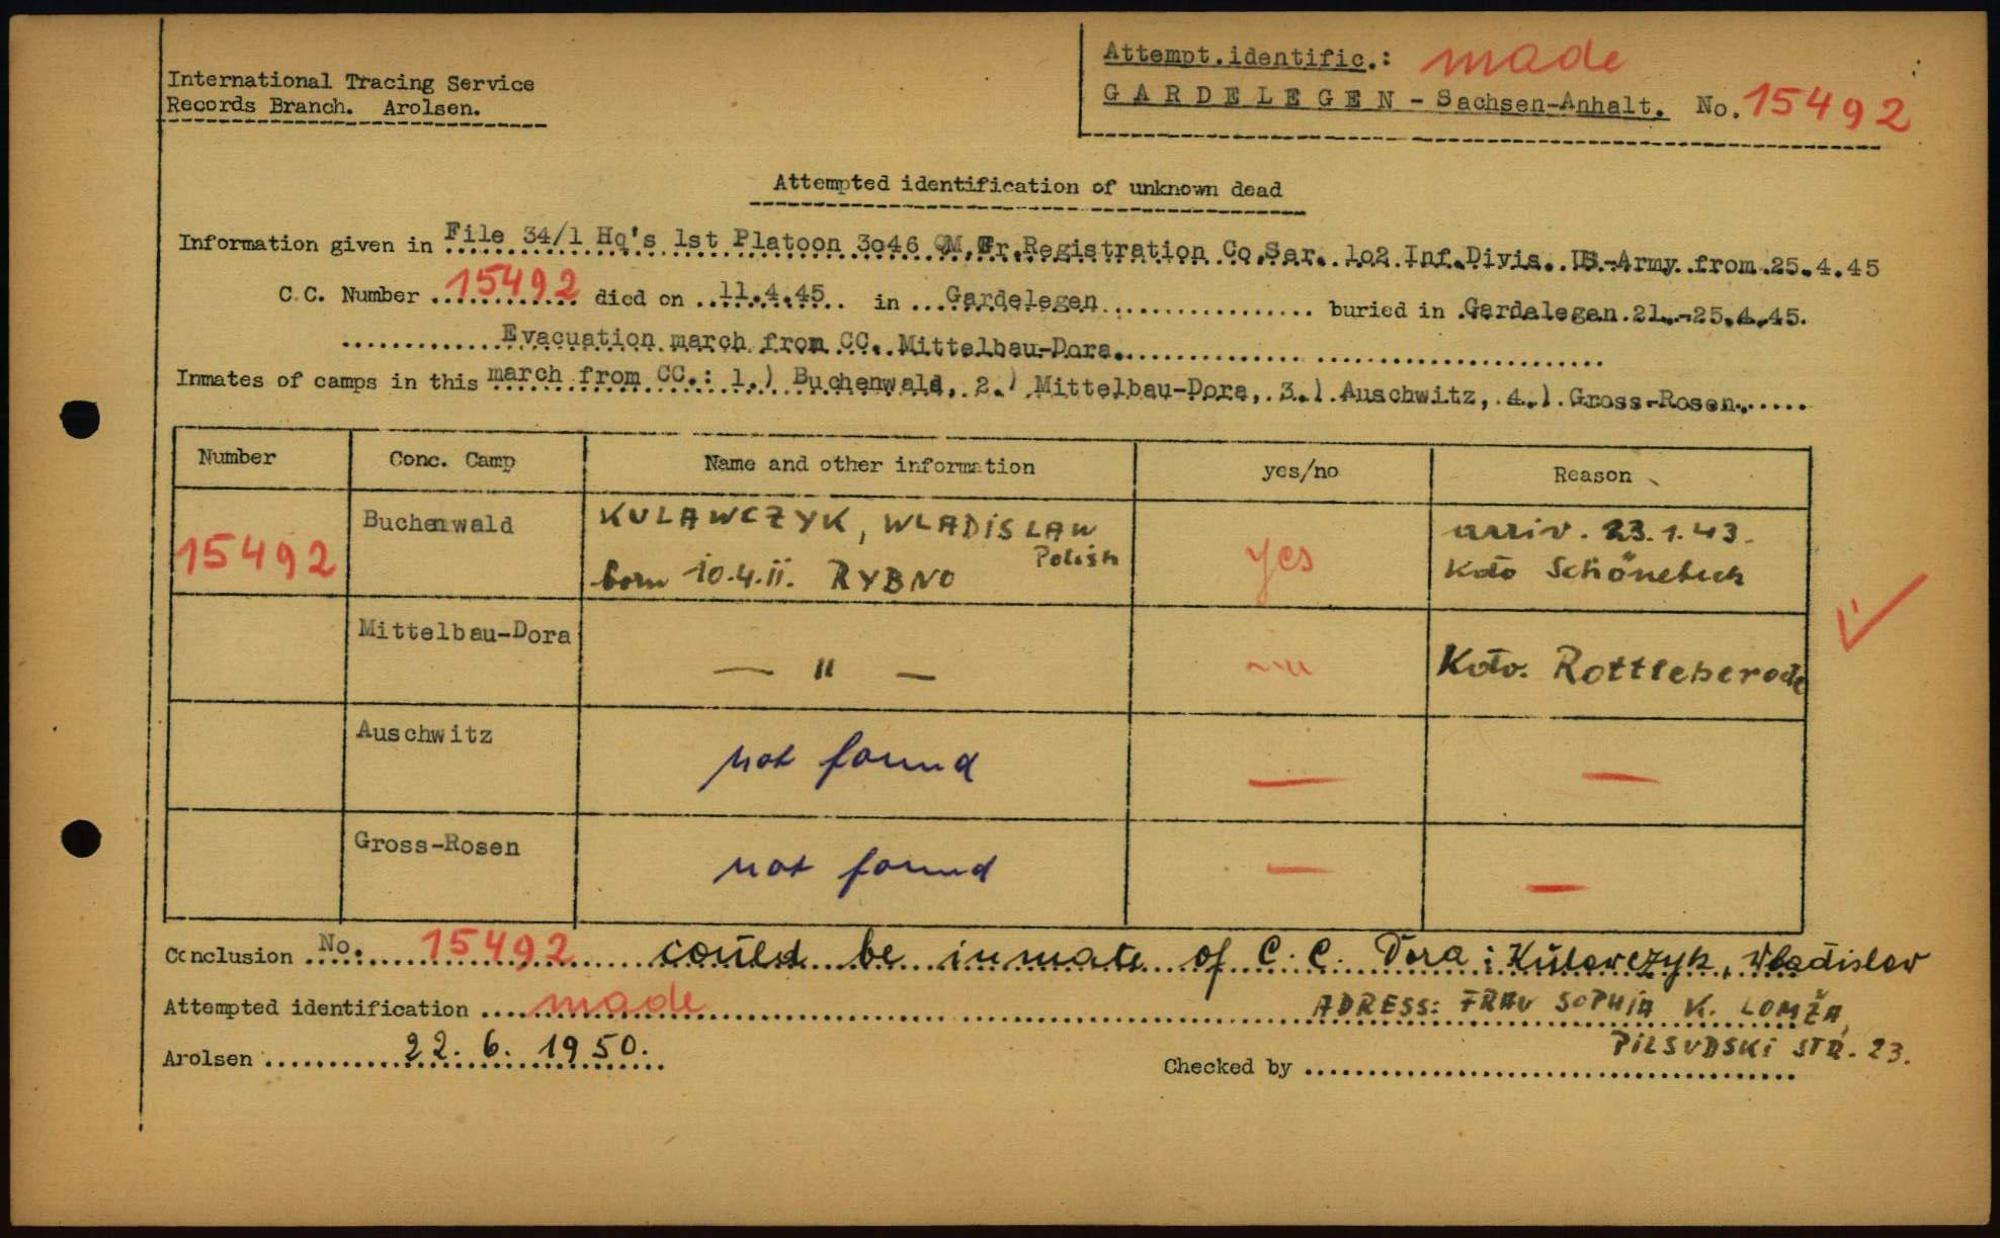 International Tracing Service
Records Branch. Arolsen.
Attempt.identific.: made
GARDELEGEN - Sachsen-Anhalt. No. 15492
Attempted identification of unknown dead
Information given in File 34/1 Hq's 1st Platoon 3046 QM.Gr.Registration Co.Sar. 102 Inf.Divis. US-Army from 25.4.45
C.C. Number 15492 died on 11.4.45 in Gardelegen buried in Gardelegen 21.-25.4.45.
Evacuation march from CC. Mittelbau-Dora.
Inmates of camps in this march from CC.: 1.) Buchenwald, 2.) Mittelbau-Dora, 3.) Auschwitz, 4.) Gross-Rosen.
Number Conc. Camp Name and other information yes/no Reason
15492 Buchenwald KULAWCZYK, WLADISLAW yes arriv. 23.1.43.
Polish
born 10.4.11. RYBNO Kdo Schönebeck
Mittelbau-Dora — " — —"— Kdo. Rottleberode
Auschwitz not found — —
Gross-Rosen not found — —
Conclusion No. 15492 could be inmate of C.C. Dora: Kulawczyk, Wladislav
Attempted identification made ADRESS: FRAU SOPHIA K. LOMŽA,
PILSUDSKI STR. 23.
Arolsen 22. 6. 1950. Checked by